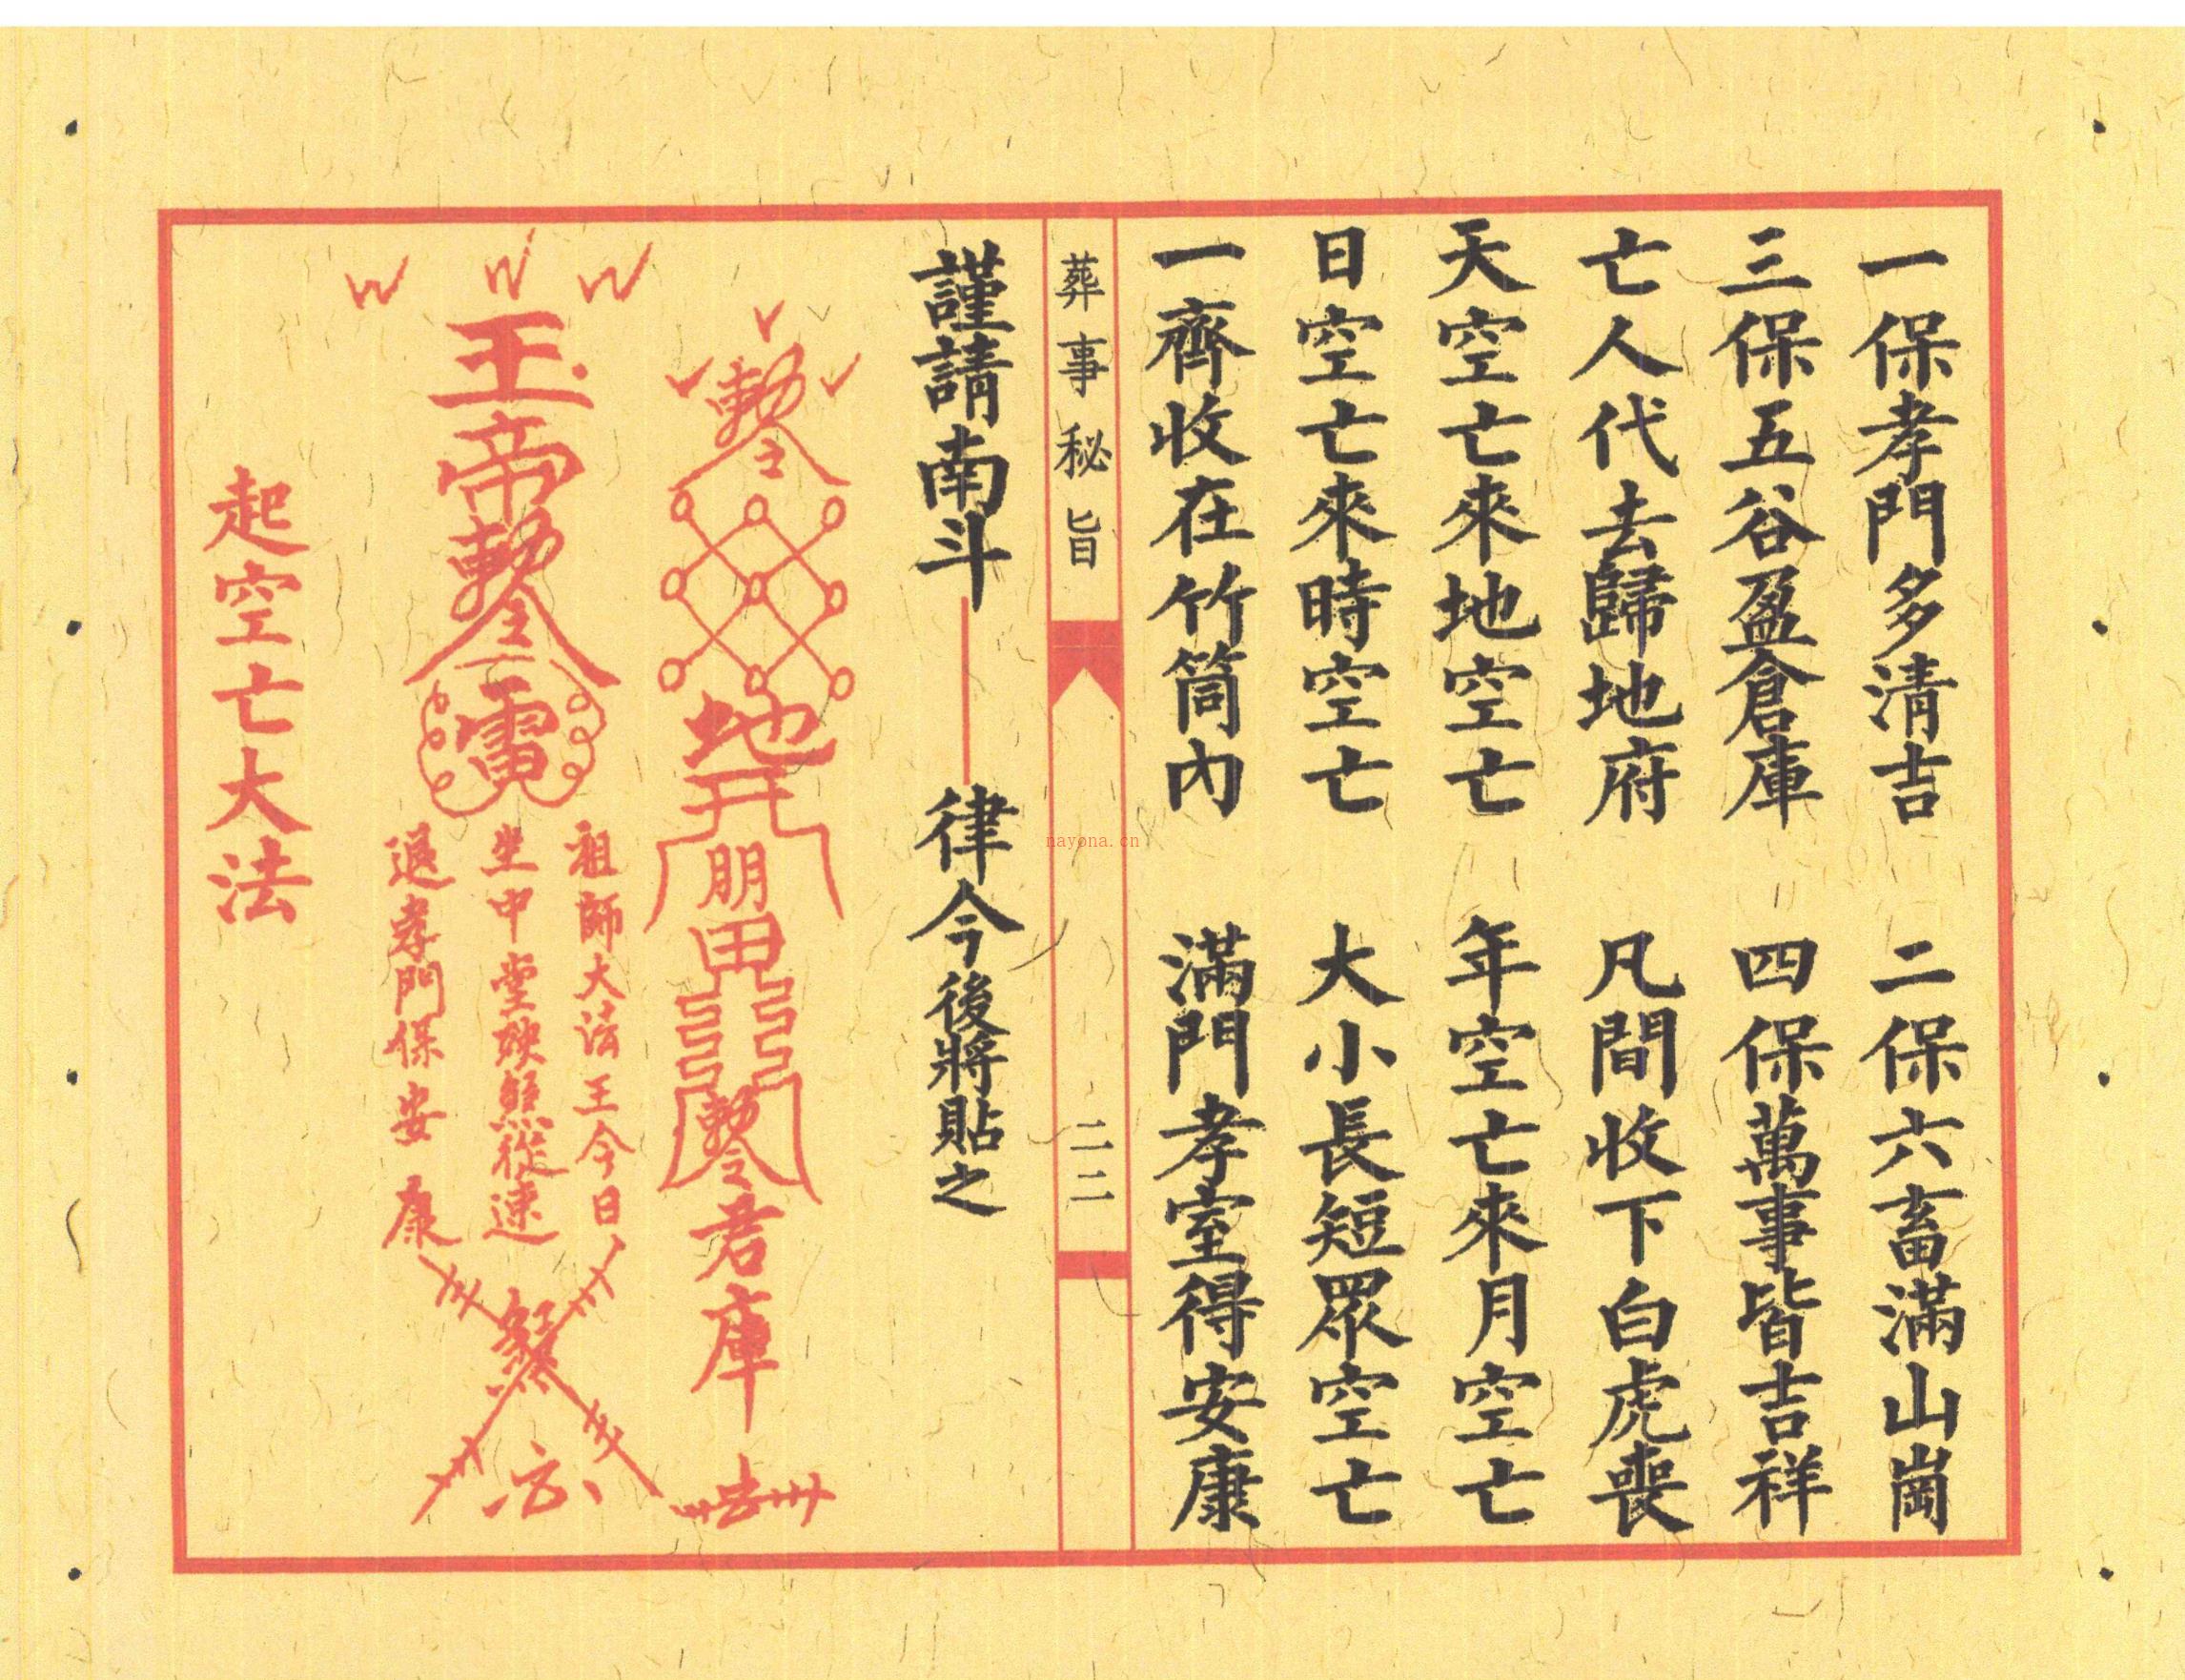 一保孝門多清吉　二保六畜滿山崗
三保五谷盈倉庫　四保萬事皆吉祥
亡人代去歸地府　凡間收下白虎喪
天空亡來地空亡　年空亡來月空亡
日空亡來時空亡　大小長短眾空亡
一齊收在竹筒內　滿門孝室得安康
葬事秘旨　二二
nayona.cn
謹請南斗　律令後將貼之
勅令
地
朋
甲
勅令君庫
去
玉帝勅令
雷
祖師大法王今日
坐中堂
孝門保安康
起空亡大法